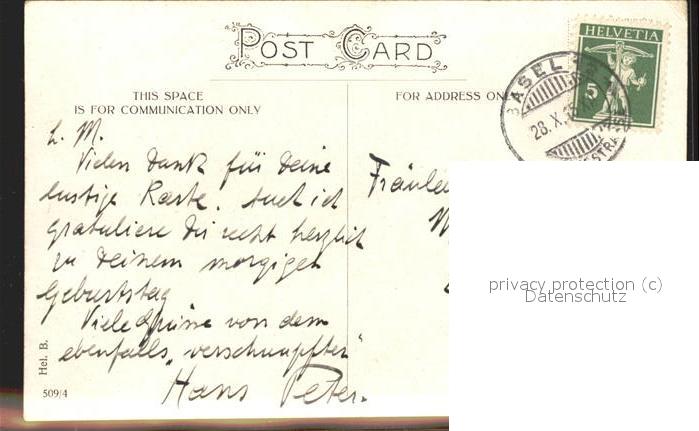 POST CARD
THIS SPACE
IS FOR COMMUNICATION ONLY
FOR ADDRESS ON
HELVETIA
5
BASEL
28.X.
L. M.
Vielen Dank für Deine
lustige Karte. Auch ich
gratuliere Dir recht herzlich
zu Deinem morgigen
Geburtstag
Viele Grüsse von dem
ebenfalls „verschnupften"
Hans Peter.
Fräulei
M
privacy protection (c)
Datenschutz
Hel. B.
509/4